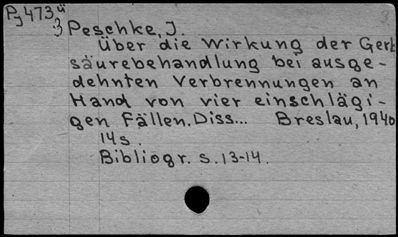 Pg473ü
3 Peschke, J.
Über die Wirkung der Gerb
säurebehandlung bei ausge-
dehnten Verbrennungen an
Hand von vier einschlägi-
gen Fällen. Diss... Breslau, 1940
14s.
Bibliogr. s. 13-14.